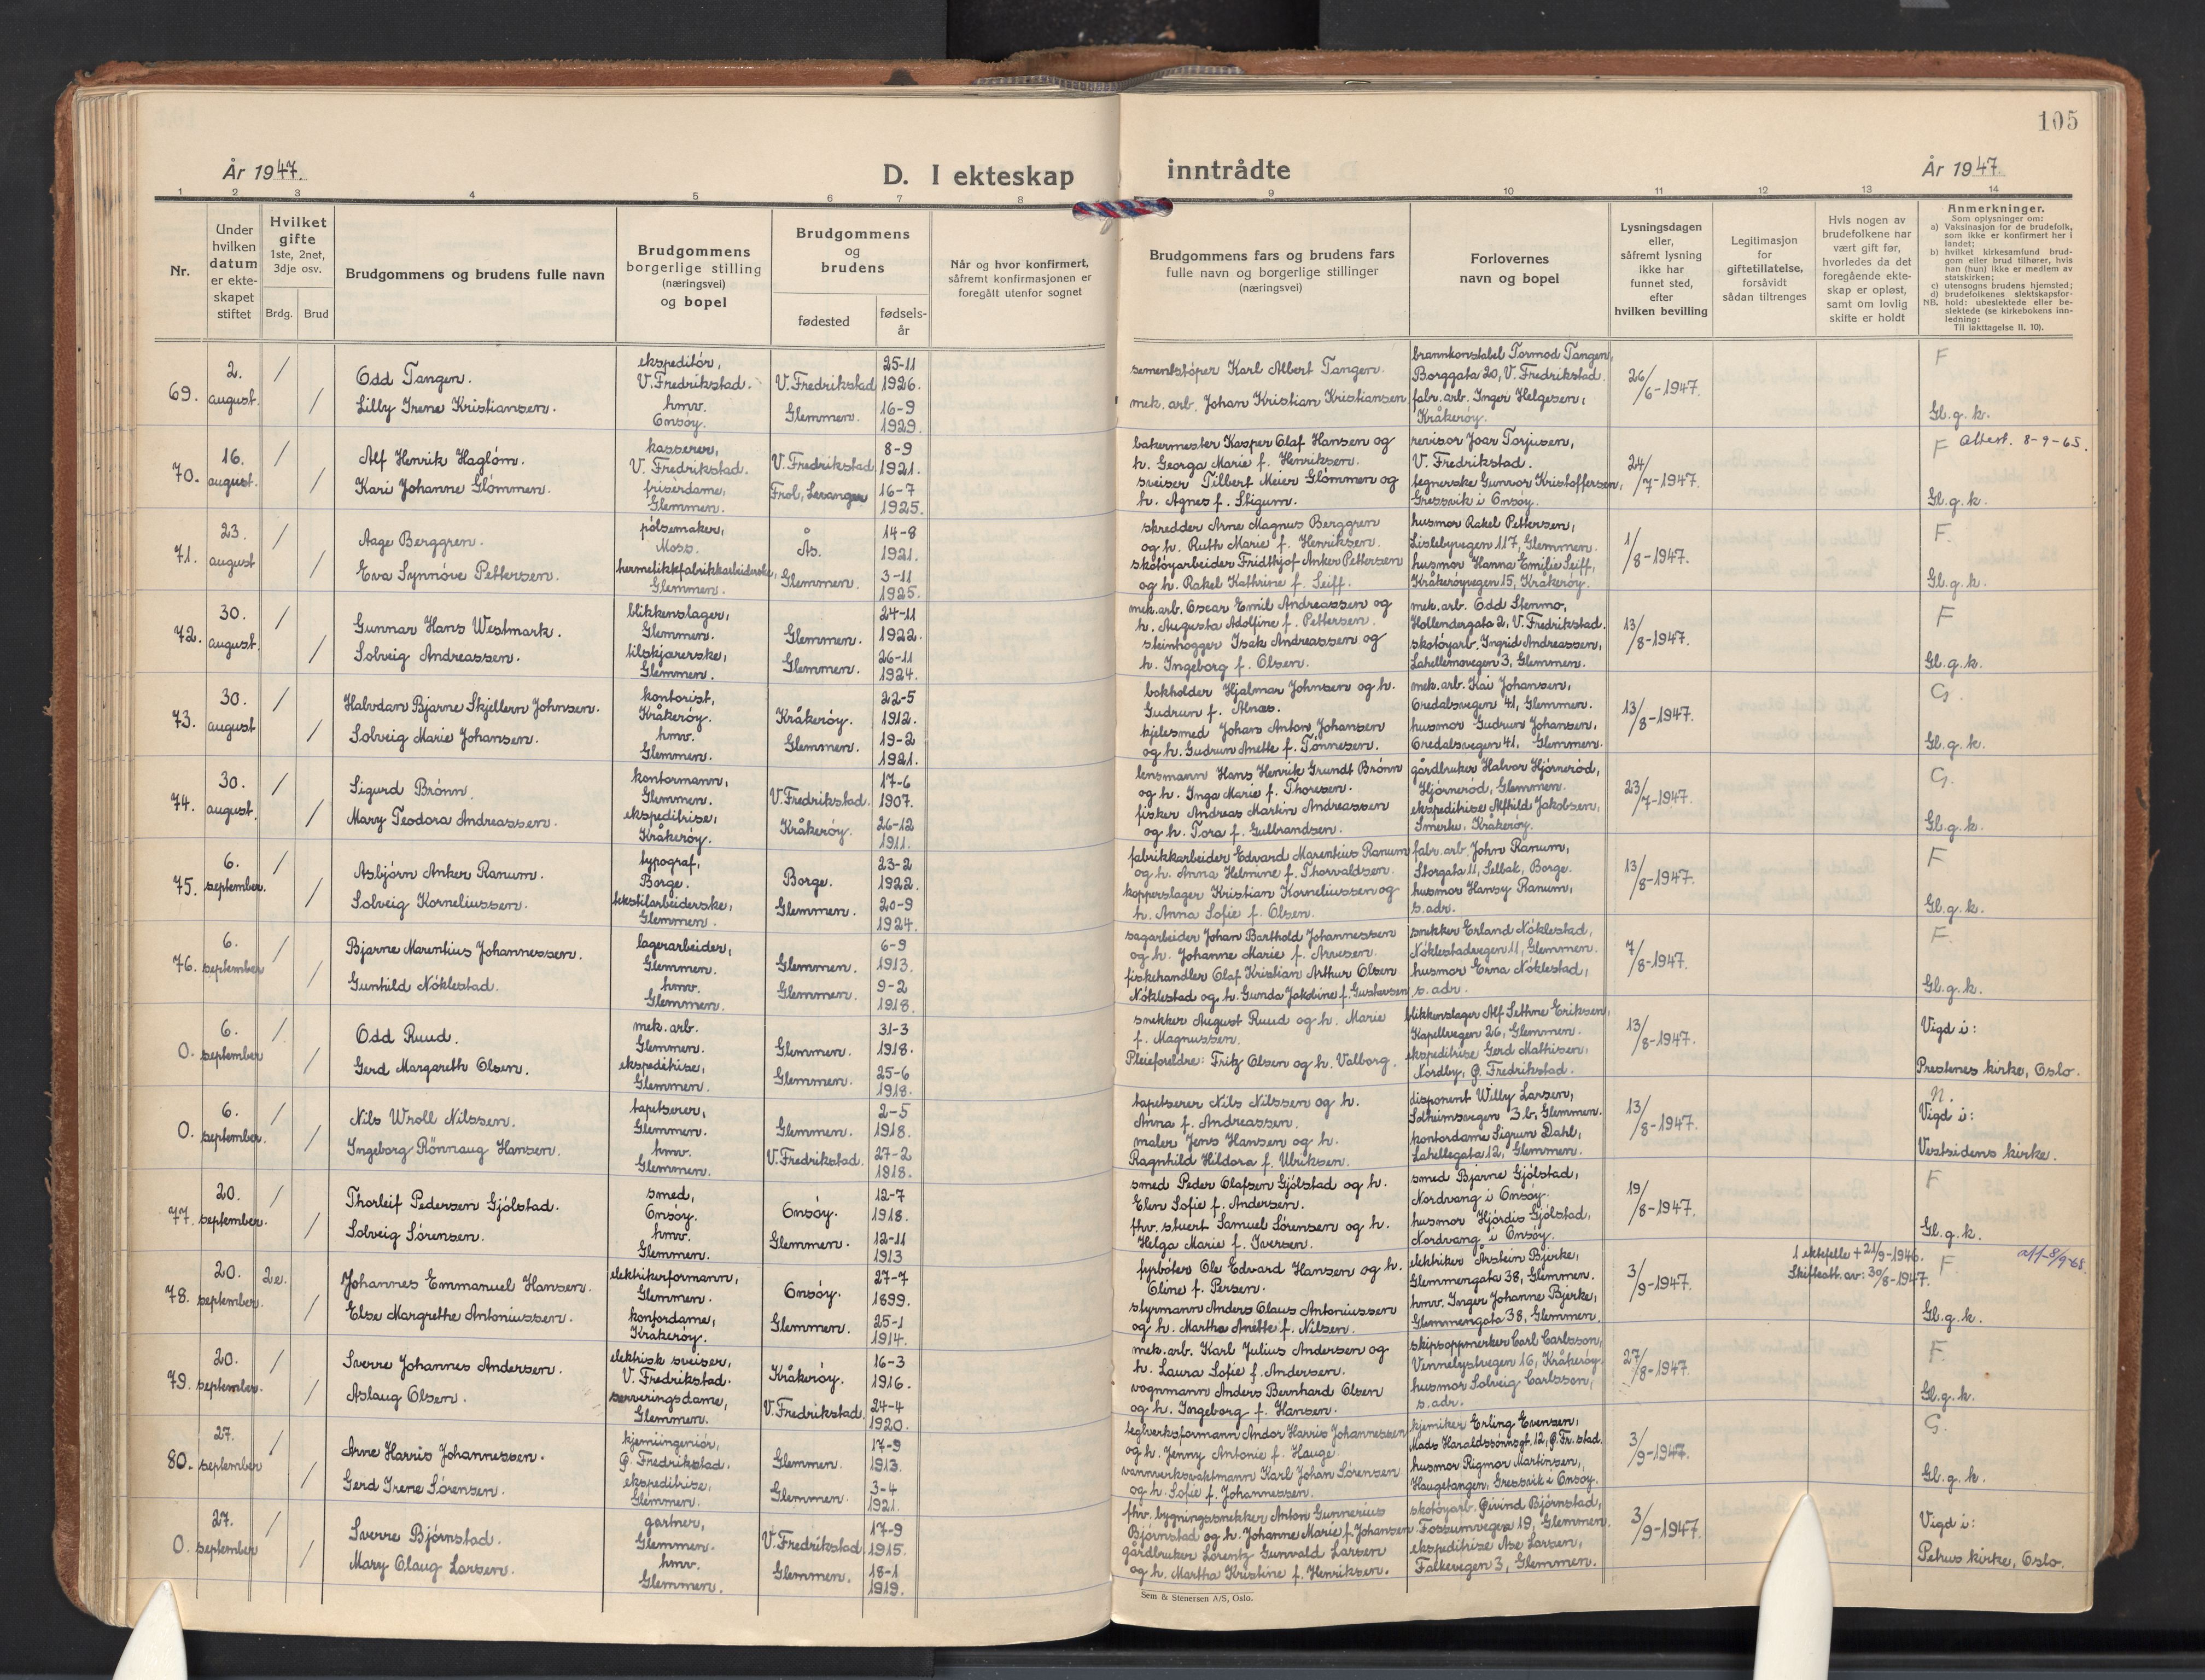 105
År 1947.
D. I ekteskap inntrådte
År 1947.
1 2 3 4 5 6 7 8 9 10 11 12 13 14
Nr.
Under hvilken datum er ekte-skapet stiftet
Hvilket gifte 1ste, 2net, 3dje osv.
Brdg. Brud
Brudgommens og brudens fulle navn
Brudgommens borgerlige stilling (næringsvei) og bopel
Brudgommens og brudens
fødested
fødsels-år
Når og hvor konfirmert, såfremt konfirmasjonen er foregått utenfor sognet
Brudgommens fars og brudens fars fulle navn og borgerlige stillinger (næringsvei)
Forlovernes navn og bopel
Lysningsdagen eller, såfremt lysning ikke har funnet sted, efter hvilken bevilling
Legitimasjon for giftetillatelse, forsåvidt sådan tiltrenges
Hvis nogen av brudefolkene har vært gift før, hvorledes da det foregående ekte-skap er opløst, samt om lovlig skifte er holdt
Anmerkninger.
Som oplysninger om:
a) Vaksinasjon for de brudefolk, som ikke er konfirmert her i landet;
b) hvilket kirkesamfund brud-gom eller brud tilhører, hvis han (hun) ikke er medlem av statskirken;
c) utensogns brudens hjemsted;
d) brudefolkenes slektskapsfor-hold: ubeslektede eller be-slektede (se kirkebokens inn-ledning:
NB.
Til iakttagelse II. 10).
69. 2. august. / Odd Tangen. ekspeditør, V. Fredrikstad. V. Fredrikstad 25-11 1926. sementstøper Karl Albert Tangen. brannkonstabel Tormod Tangen, Borggata 20, V. Fredrikstad. 26/6-1947. F
/ Lilly Irene Kristiansen. hmv. Onsøy. Glemmen. 16-9 1929. mek. arb. Johan Kristian Kristiansen fabr. arb. Inger Helgesen, Kråkerøy. Gl.g.k.
70. 16. august. / Alf Henrik Hagløm. kasserer, V. Fredrikstad. V. Fredrikstad 8-9 1921. bakermester Kasper Olaf Hansen og h. Georga Marie f. Henriksen. revisor Joar Torjusen, V. Fredrikstad. 24/7-1947. F Attest. 8-9-65.
/ Kari Johanne Glømmen. frisérdame, Glemmen. Frol, Levanger 16-7 1925. sveiser Tilbert Meier Glømmen og h. Agnes f. Stigum. tegnerske Gunvor Kristoffersen, Gressvik i Onsøy. Gl.g.k.
71. 23. august / Aage Berggren. pølsemaker, Moss. Ås. 14-8 1921. skredder Arne Magnus Berggren og h. Ruth Marie f. Henriksen. husmor Rakel Pettersen, Lislebyvegen 117, Glemmen. 1/8-1947. F.
/ Eva Synnøve Pettersen. hermetikkfabrikkarbeiderske, Glemmen. Glemmen. 3-11 1925. skotøyarbeider Fridthjof Anker Pettersen og h. Rakel Kathrine f. Seiff. husmor Hanna Emilie Seiff, Kråkerøyvegen 15, Kråkerøy. Gl.g.k.
72. 30. august. / Gunnar Hans Westmark. blikkenslager, Glemmen. Glemmen. 24-11 1922. mek. arb. Oscar Emil Andreassen og h. Augusta Adolfine f. Pettersen. mek. arb. Odd Stenmo, Hollendergata 2, V. Fredrikstad. 13/8-1947. F
/ Solveig Andreassen. tilskjærerske, Glemmen. Glemmen. 26-11 1924. steinhogger Isak Andreassen og h. Ingeborg f. Olsen. skotøyarb. Ingrid Andreassen, Lahellemovegen 3, Glemmen. Gl.g.k.
73. 30. august / Halvdan Bjarne Skjellern Johnsen. kontorist, Kråkerøy. Kråkerøy. 22-5 1912. bokholder Hjalmar Johnsen og h. Gudrun f. Alnæs. mek. arb. Kai Johansen, Oredalsvegen 41, Glemmen. 13/8-1947. G.
/ Solveig Marie Johansen. hmv. Glemmen. Glemmen. 19-2 1921. kjelesmed Johan Anton Johansen og h. Gudrun Anette f. Tønnesen. husmor Gudrun Johansen, Oredalsvegen 41, Glemmen. Gl.g.k.
74. 30. august. / Sigurd Brónn. kontormann, Glemmen. V. Fredrikstad. 17-6 1907. lensmann Hans Henrik Grundt Brónn og h. Inga Marie f. Thoresen. gårdbruker Halvor Hjørnerød, Hjørnerød, Glemmen. 23/7-1947. G.
/ Mary Teodora Andreassen. ekspeditrise, Kråkerøy. Kråkerøy. 26-12 1911. fisker Andreas Martin Andreassen og h. Tora f. Gulbrandsen. ekspeditrise Alfhild Jakobsen, Smerku, Kråkerøy. Gl.g.k.
75. 6. september. / Asbjørn Anker Ranum. typograf, Borge. Borge. 23-2 1922. fabrikkarbeider Edvard Marentius Ranum og h. Anna Helmine f. Thorvaldsen. fabr. arb. John Ranum, Storgata 11, Selbak, Borge. 13/8-1947. F
/ Solveig Korneliussen. tekstilarbeiderske, Glemmen. Glemmen. 20-9 1924. kopperslager Kristian Korneliussen og h. Anna Sofie f. Olsen. husmor Hansy Ranum, s. adr. Gl.g.k.
76. 6. september / Bjarne Marentius Johannessen. lagerarbeider, Glemmen. Glemmen. 6-9 1913. sagarbeider Johan Barthold Johannessen og h. Johanne Marie f. Arvesen. snekker Erland Nøklestad, Nøklestadvegen 11, Glemmen. 7/8-1947. F.
/ Gunhild Nøklestad. hmv. Glemmen. Glemmen. 9-2 1918. fiskehandler Olaf Kristian Arthur Olsen Nøklestad og h. Gunda Jakobine f. Gustavsen husmor Erna Nøklestad, s. adr. Gl.g.k.
0. 6. september / Odd Ruud. mek. arb. Glemmen. Glemmen. 31-3 1918. snekker August Ruud og h. Marie f. Magnussen. blikkenslager Alf Sethne Eriksen, Kapellvegen 26, Glemmen. 13/8-1947. Vigd i:
/ Gerd Margareth Olsen. ekspeditrise, Glemmen. Glemmen. 25-6 1918. Pleieforeldre: Fritz Olsen og h. Valborg. ekspeditrise Gerd Mathisen, Nordby, Ø. Fredrikstad. Prestenes kirke, Oslo.
0. 6. september. / Nils Wroll Nilssen. tapetserer, Glemmen. Glemmen. 2-5 1918. tapetserer Nils Nilssen og h. Anna f. Andreassen. disponent Willy Larsen, Solheimsvegen 3.b, Glemmen. 13/8-1947. N. Vigd i:
/ Ingeborg Rönnaug Hansen. hmv. Glemmen. V. Fredrikstad. 27-2 1918. maler Jens Hansen og h. Ragnhild Hildora f. Ulriksen. kontordame Sigrun Dahl, Lahellegata 12, Glemmen. Vestsidens kirke.
77. 20. september. / Thorleif Pedersen Gjølstad. smed, Onsøy. Onsøy. 12-7 1918. smed Peder Olafsen Gjølstad og h. Elen Sofie f. Andersen. smed Bjarne Gjølstad, Nordvang i Onsøy. 19/8-1947. F
/ Solveig Sørensen. hmv. Glemmen. Glemmen. 12-11 1913 fhv. stuert Samuel Sørensen og h. Helga Marie f. Iversen. husmor Hjørdis Gjølstad, Nordvang i Onsøy. Gl.g.k.
78. 20. september. 2e. Johannes Emmanuel Hansen. elektrikerformann, Glemmen. Onsøy. 27-7 1899. fyrbøter Ole Edvard Hansen og h. Oline f. Persen. elektriker Arstein Bjerke, Glemmengata 38, Glemmen. 3/9-1947. 1 ektefelle + 21/9-1946. Skifteatt. av: 30/8-1947. F att-8/9-68.
/ Else Margrethe Antoniussen. kontordame, Kråkerøy. Glemmen. 25-1 1914. styrmann Anders Olaus Antoniussen og h. Martha Anette f. Nilsen. hmv. Inger Johanne Bjerke, Glemmengata 38, Glemmen. Gl.g.k.
79. 20. september. / Sverre Johannes Andersen. elektrisk sveiser, V. Fredrikstad. Kråkerøy. 16-3 1916. mek. arb. Karl Julius Andersen og h. Laura Sofie f. Andersen. skipsoppmerker Carl Carlsson, Vennelystvegen 16, Kråkerøy. 27/8-1947 F.
/ Aslaug Olsen. serveringsdame, Glemmen. V. Fredrikstad. 24-4 1920. vognmann Anders Bernhard Olsen og h. Ingeborg f. Hansen. husmor Solveig Carlsson, s. adr. Gl.g.k.
80. 27. september / Arne Harris Johannessen. kjemiingeniør, Ø. Fredrikstad. Glemmen. 17-9 1913. teglverksformann Andor Harris Johannessen og h. Jenny Antonie f. Hauge. kjemiker Erling Evensen, Mads Haraldssønnsgt. 12, Ø. Fr.stad. 3/9-1947. G.
/ Gerd Irene Sørensen. ekspeditrise, Glemmen. Glemmen. 3-4 1921. vannverksvaktmann Karl Johan Sørensen og h. Sofie f. Johannessen. husmor Rigmor Martinsen, Haugetangen, Gressvik i Onsøy. Gl.g.k.
0. 27. september / Sverre Bjørnstad. gartner, Glemmen. V. Fredrikstad. 17-9 1915. fhv. bygningssnekker Anton Gunnerius Bjørnstad og h. Johanne Marie f. Johansen skotøyarb. Øivind Bjørnstad, Fossumvegen 19, Glemmen. 3/9-1947. Vigd i:
/ Mary Olaug Larsen. hmv. Glemmen. Glemmen. 18-1 1919. gårdbruker Lorentz Gunvald Larsen og h. Martha Kristine f. Henriksen. ekspeditrise Åse Larsen, Falkevegen 3, Glemmen. Petrus kirke, Oslo.
Sem & Stenersen A/S, Oslo.